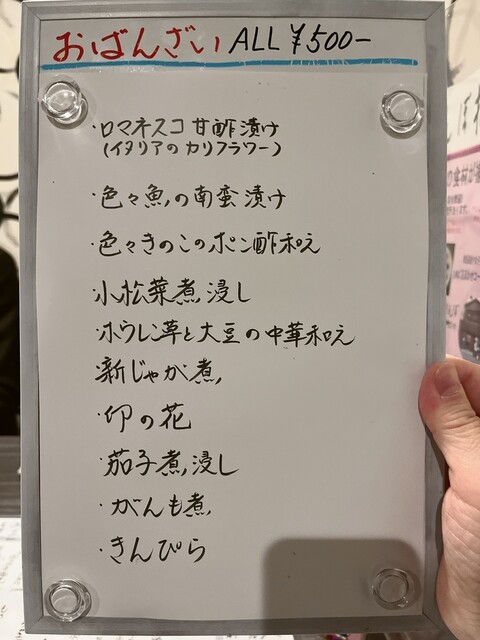 おばんざい ALL ¥500-
・ロマネスコ 甘酢漬け
(イタリアのカリフラワー)
・色々魚の南蛮漬け
・色々きのこのポン酢和え
・小松菜煮浸し
・ホウレン草と大豆の中華和え
・新じゃが煮
・卯の花
・茄子煮浸し
・がんも煮
・きんぴら